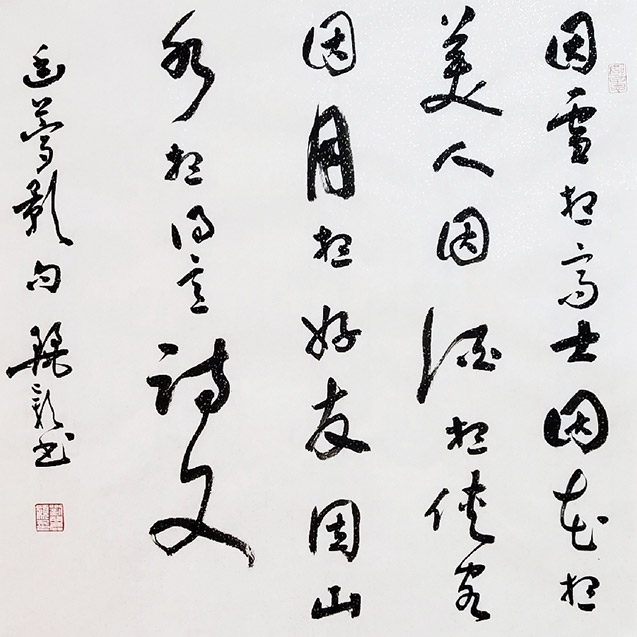 因雪想高士因花想
美人因酒想侠客
因月想好友因山
水想得意诗文
幽梦影句